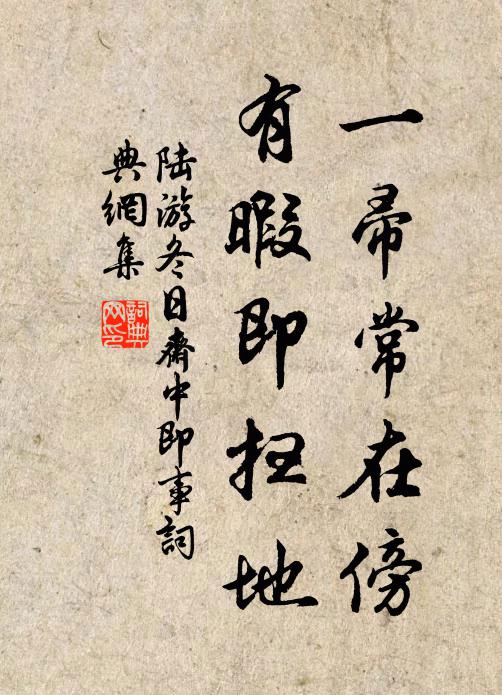 一帚常在傍
有暇即扫地
陆游冬日斋中即事詞
典網集
詞典网印